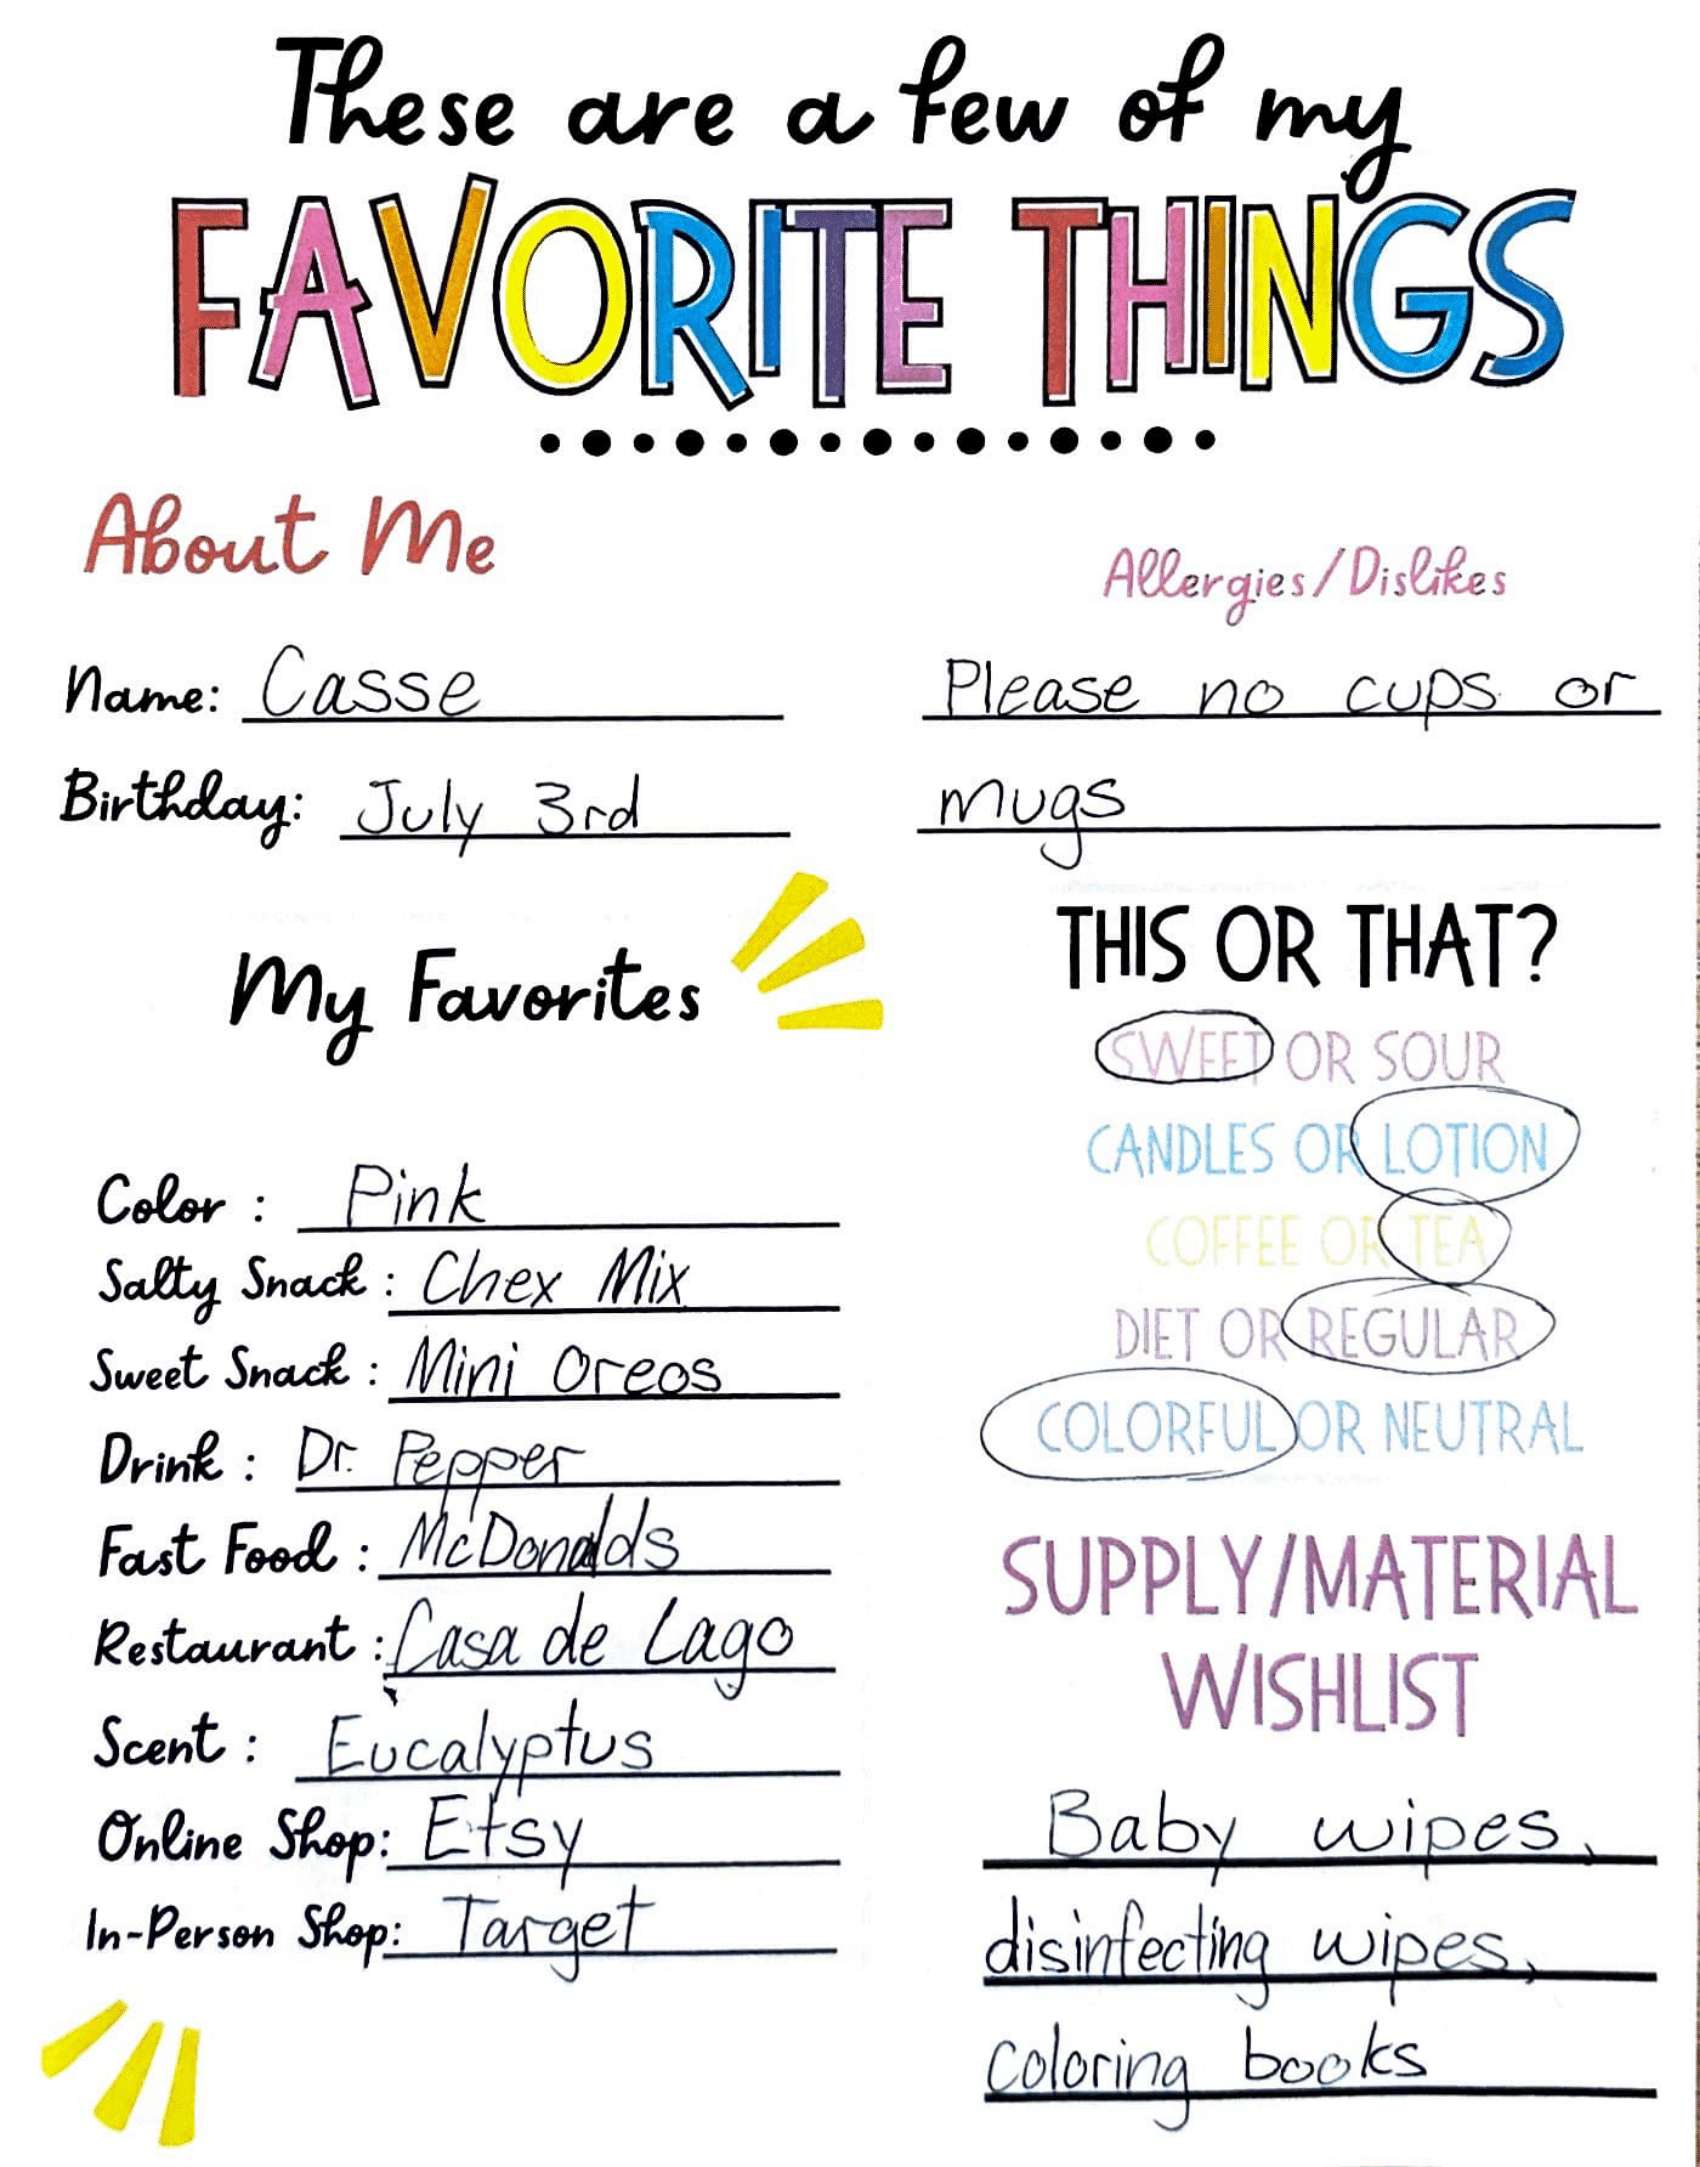 These are a few of my
FAVORITE THINGS
About Me
Name: Casse
Birthday: July 3rd
Allergies/Dislikes
Please no cups or
mugs
My Favorites
Color : Pink
Salty Snack : Chex Mix
Sweet Snack : Mini Oreos
Drink : Dr. Pepper
Fast Food : McDonalds
Restaurant : Casa de Lago
Scent : Eucalyptus
Online Shop: Etsy
In-Person Shop: Target
THIS OR THAT?
SWEET OR SOUR
CANDLES OR LOTION
COFFEE OR TEA
DIET OR REGULAR
COLORFUL OR NEUTRAL
SUPPLY/MATERIAL
WISHLIST
Baby wipes,
disinfecting wipes,
coloring books